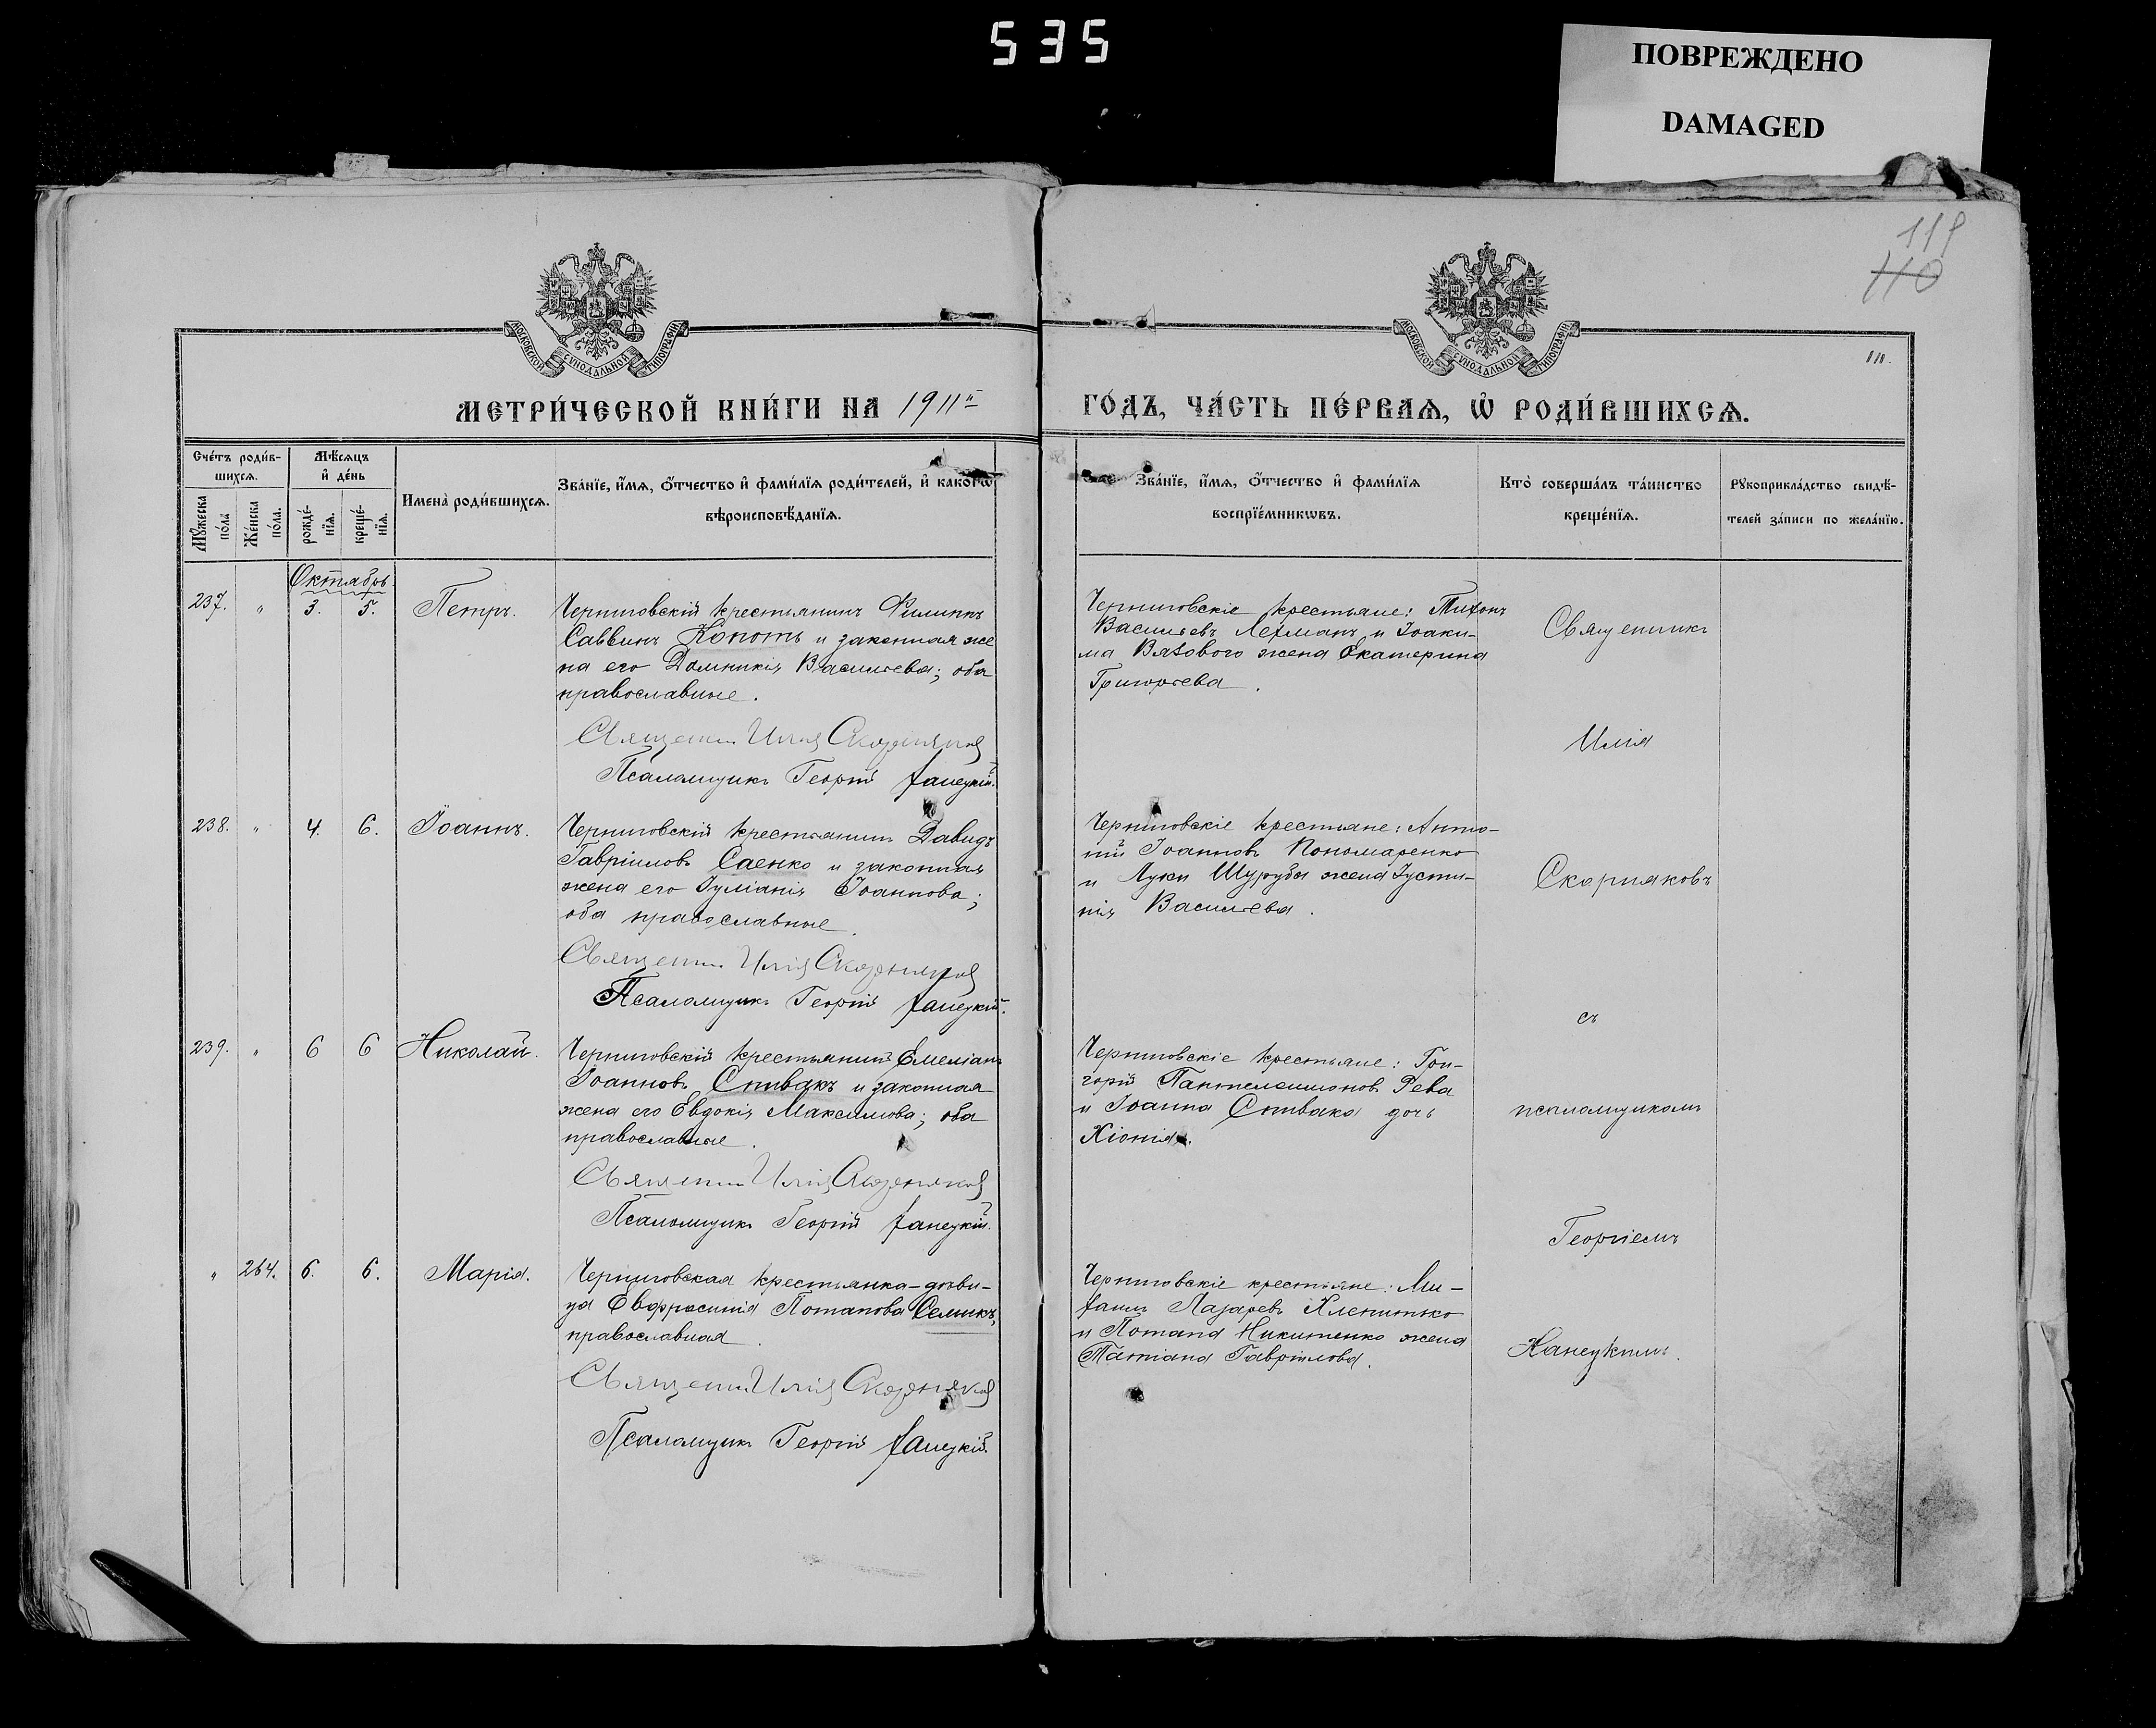 535
ПОВРЕЖДЕНО
DAMAGED
119
110
111.
МОСКОВСКОЙ СѴНОДАЛЬНОЙ ТИПОГРАФІИ
МОСКОВСКОЙ СѴНОДАЛЬНОЙ ТИПОГРАФІИ
МЕТРИ́ЧЕСКОЙ КНИ́ГИ НА 1911й
ГО́ДЪ, ЧА́СТЬ ПЕ́РВАѦ, Ѡ҆ РОДИ́ВШИХСѦ.
Сче́тъ роди́в-
шихсѧ.
Мꙋ́жеска по́ла
Же́нска по́ла.
Мѣ́сѧцъ
и҆ де́нь
рожде́-нїѧ.
креще́-нїѧ.
Имена̀ роди́вшихсѧ.
Зва́нїе, и҆́мѧ, ѻ҆́тчество и҆ фами́лїѧ роди́телей, и҆ како́гѡ
вѣроисповѣ́данїѧ.
Зва́нїе, и҆́мѧ, ѻ҆́тчество и҆ фами́лїѧ
воспрїе́мникѡвъ.
Кто̀ соверша́лъ та́инство
креще́нїѧ.
Рꙋкоприкла́дство свидѣ́-
телей за́писи по жела́нїю.
Октябрь.
237. " 3. 5. Петръ.
Черниговскій крестьянинъ Филиппъ
Саввинъ Копоть и законная же
на его Домникія Васильева; оба
православные.
Священникъ Илія Скорняковъ
Псаломщикъ Георгій Ханецкій.
Черниговскіе крестьяне: Тихонъ
Васильевъ Лехманъ и Іоаки-
ма Вязового жена Екатерина
Григорьева.
238. " 4. 6. Іоаннъ.
Черниговскій крестьянинъ Давидъ
Гавріиловъ Саенко и законная
жена его Іуліанія Іоаннова;
оба православные.
Священникъ Илія Скорняковъ
Псаломщикъ Георгій Ханецкій.
Черниговскіе крестьяне: Анто-
ній Іоанновъ Пономаренко
и Луки Шурубы жена Іусти-
нія Васильева.
239. " 6 6 Николай.
Черниговскій крестьянинъ Емеліанъ
Іоанновъ Спивакъ и законная
жена его Евдокія Максимова; оба
православные.
Священникъ Илія Скорняковъ
Псаломщикъ Георгій Ханецкій.
Черниговскіе крестьяне: Гри-
горій Пантелеимоновъ Рева
и Іоанна Спивака дочь
Хіонія.
" 264. 6. 6. Марія.
Черниговская крестьянка-дѣви-
ца Евфросинія Потапова Семикъ,
православная.
Священникъ Илія Скорняковъ
Псаломщикъ Георгій Ханецкій.
Черниговскіе крестьяне: Ми-
хаилъ Лазаревъ
и Потапа Никитенко жена
Татіана Гавріилова.
Священникъ
Илія
Скорняковъ
съ
псаломщикомъ
Георгіемъ
Ханецкимъ.